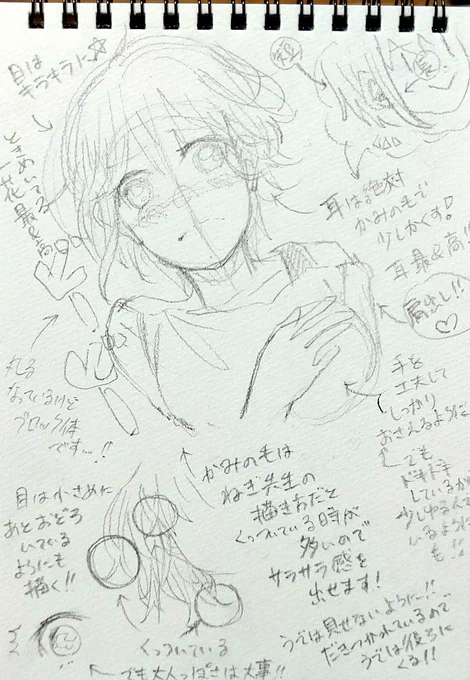 目は
キラキラに☆
ときめいてる
花
最&高!!
丸く
なっているけど
ブロック体
です…!!
耳は絶対
かみのもで
少しかくす!
耳最&高!!
肩出し!!
♡
手を
工夫して
しっかり
おさえるように
でも
ドキドキ
しているが
少しゆるんで
いるように
も!!
かみのもは
ねぎ先生の
描き方だと
くっついている時が
多いので
サラサラ感を
出せます!
目は小さめに
あとおどろ
いている
ようにも
描く!!
くっついている
でも大人っぽさは大事!!
うでは見せないように!!
だきつかれているので
うでは後ろに
くる!!